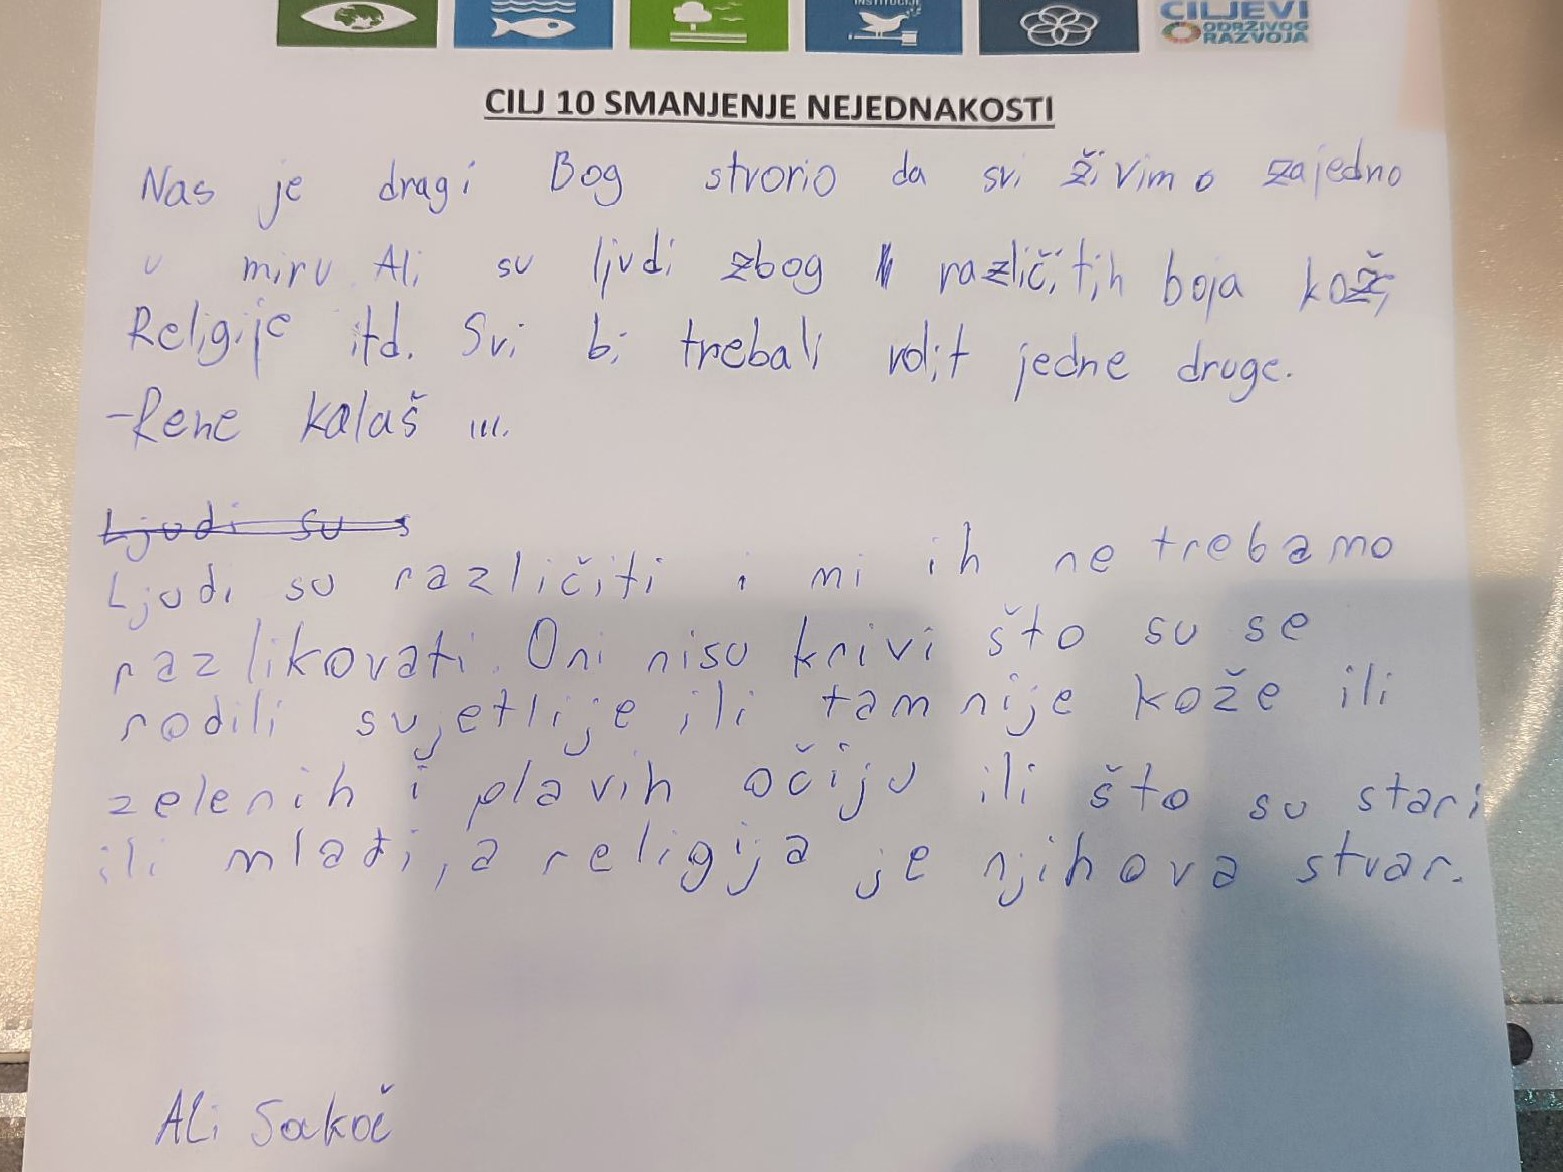 INSTITUCIJE
CILJEVI
ODRŽIVOG
RAZVOJA
CILJ 10 SMANJENJE NEJEDNAKOSTI
Nas je dragi Bog stvorio da svi živimo zajedno
u miru. Ali su ljudi zbog različitih boja kože,
Religije itd. Svi bi trebali volit jedne druge.
-Rene Kalaš III.
Ljudi su s
Ljudi su različiti i mi ih ne trebamo
razlikovati. Oni nisu krivi što su se
rodili svjetlije ili tamnije kože ili
zelenih i plavih očiju ili što su stari
ili mlađi, a religija je njihova stvar.
Ali